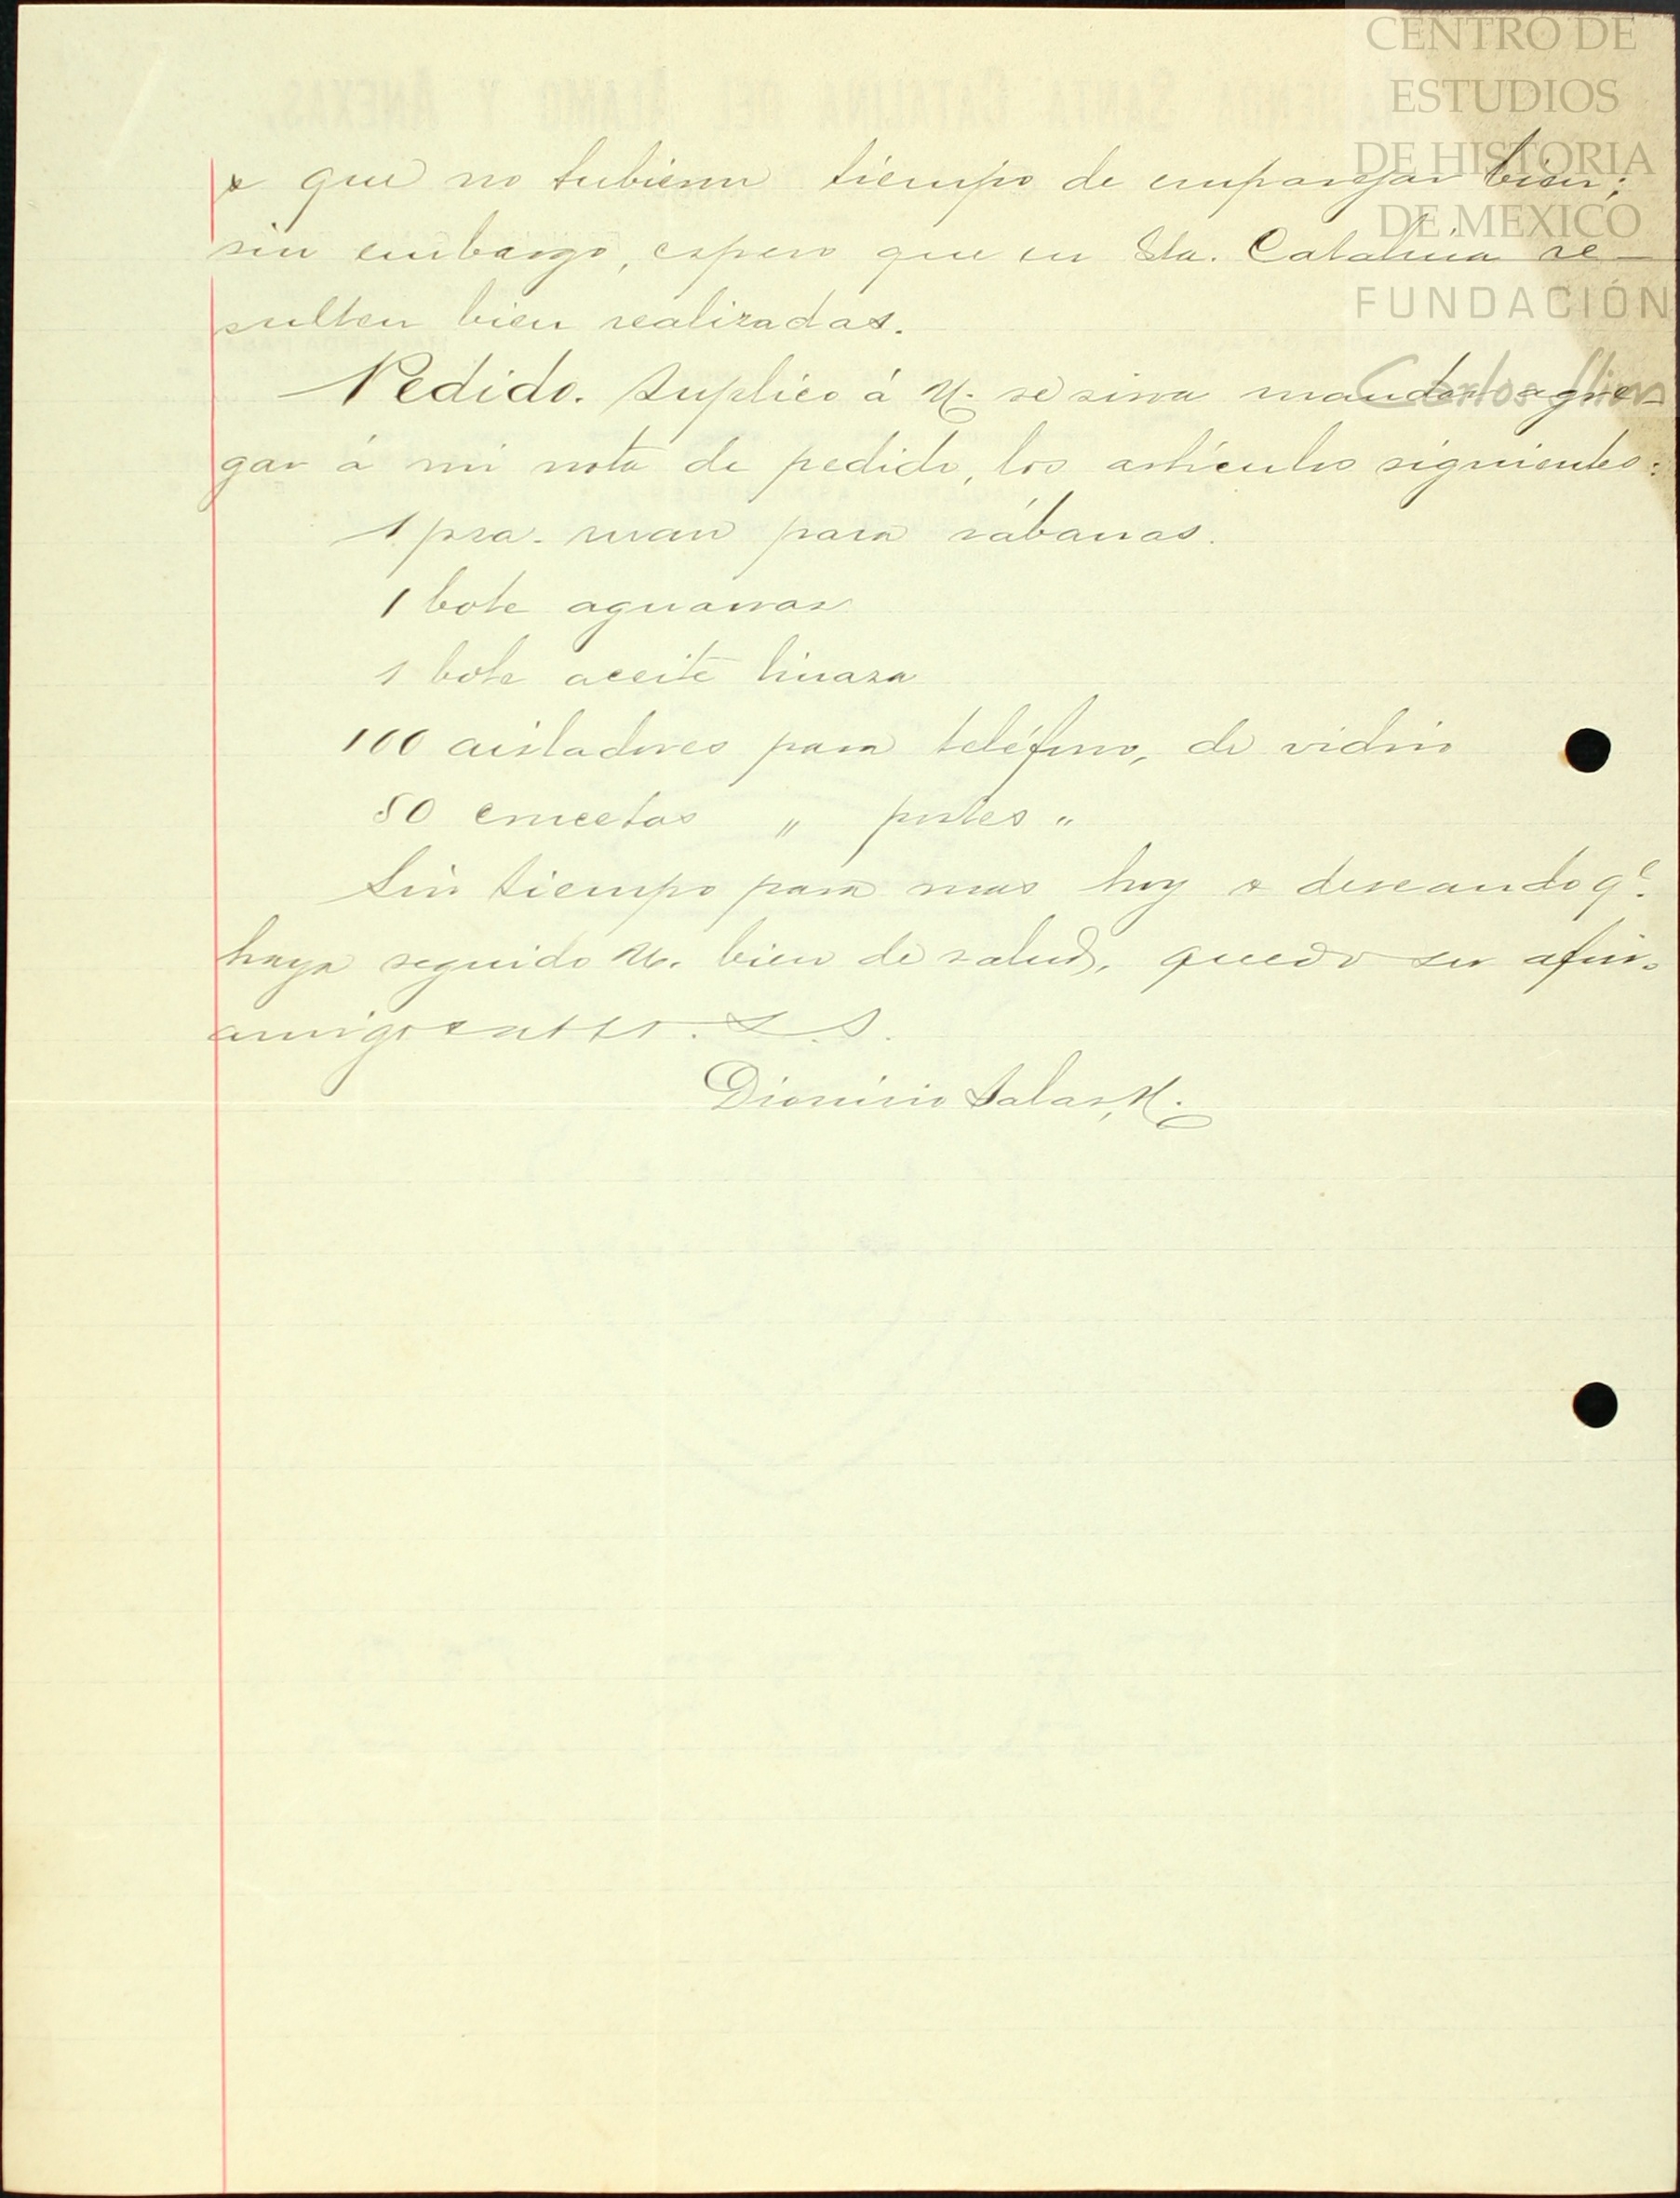 CENTRO DE
ESTUDIOS
DE HISTORIA
DE MEXICO
FUNDACIÓN
Carlos Slim
HACIENDA SANTA CATALINA DEL ALAMO Y ANEXAS.
y que no tubieron tiempo de emparejar bien;
sin embargo, espero que en Sta. Catalina re-
sulten bien realizadas.
Pedido. Suplico á U. se sirva mandar agre-
gar á mi nota de pedido, los artículos siguientes:
1 pza. ruan para sábanas.
1 bote aguarras
1 bote aceite linaza
100 aisladores para teléfono, de vidrio
50 crucetas " postes "
Sin tiempo para mas hoy y deseando qe.
haya seguido U. bien de salud, quedo su afmo.
amigo y atto. S. S.
Dionisio Salas, H.